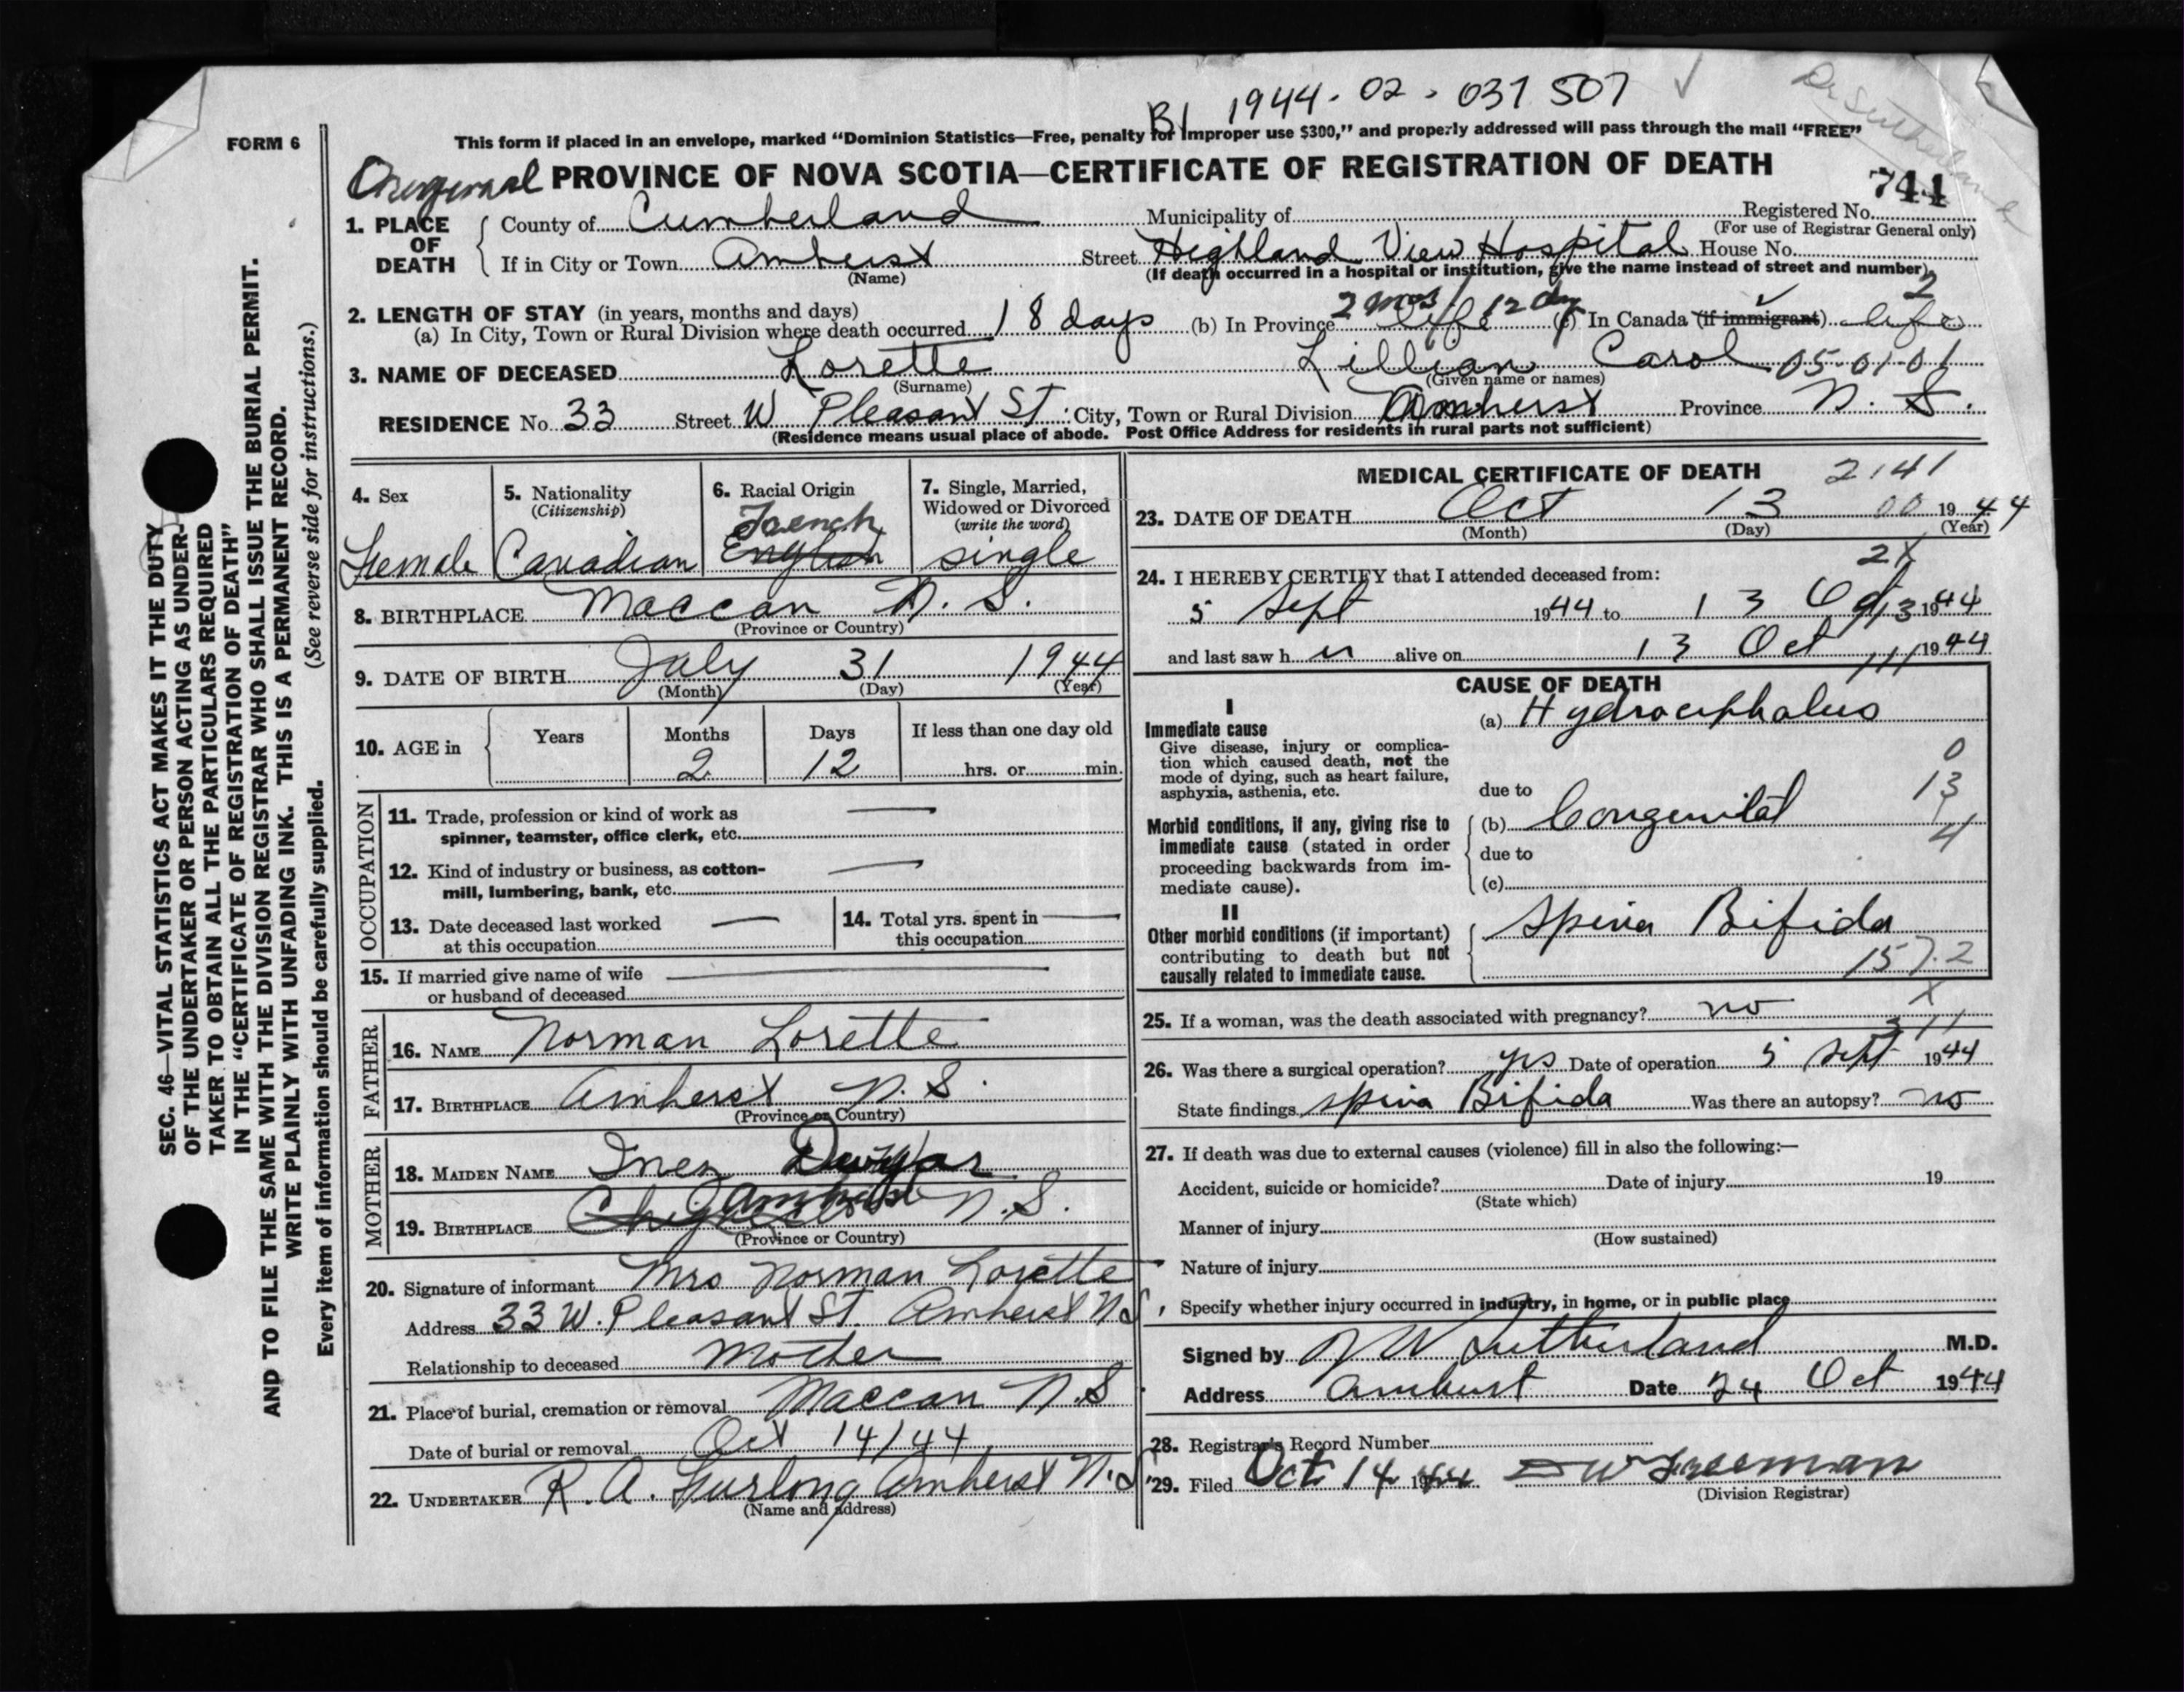 B1 1944-02-037507
Dr Sutherland
FORM 6
This form if placed in an envelope, marked “Dominion Statistics—Free, penalty for improper use $300,” and properly addressed will pass through the mail “FREE”
Original PROVINCE OF NOVA SCOTIA—CERTIFICATE OF REGISTRATION OF DEATH
744
1. PLACE OF DEATH
County of Cumberland Municipality of Registered No.
(For use of Registrar General only)
If in City or Town Amherst Street Highland View Hospital House No.
(Name) (If death occurred in a hospital or institution, give the name instead of street and number)
2. LENGTH OF STAY (in years, months and days)
(a) In City, Town or Rural Division where death occurred 18 days (b) In Province 2 mos 12 dys life (c) In Canada (if immigrant) life
2
3. NAME OF DECEASED Lorette Lillian Carol 05-01-01
(Surname) (Given name or names)
RESIDENCE No. 33 Street W Pleasant St. City, Town or Rural Division Amherst Province N. S.
(Residence means usual place of abode. Post Office Address for residents in rural parts not sufficient)
4. Sex
Female
5. Nationality
(Citizenship)
Canadian
6. Racial Origin
French
English
7. Single, Married,
Widowed or Divorced
(write the word)
single
8. BIRTHPLACE Maccan N. S.
(Province or Country)
9. DATE OF BIRTH July 31 1944
(Month) (Day) (Year)
10. AGE in Years Months Days If less than one day old
2 12 hrs. or min.
OCCUPATION
11. Trade, profession or kind of work as —
spinner, teamster, office clerk, etc.
12. Kind of industry or business, as cotton- —
mill, lumbering, bank, etc.
13. Date deceased last worked —
at this occupation
14. Total yrs. spent in —
this occupation
15. If married give name of wife —
or husband of deceased
FATHER
16. NAME Norman Lorette
17. BIRTHPLACE Amherst N. S.
(Province or Country)
MOTHER
18. MAIDEN NAME Inez
19. BIRTHPLACE Amherst N. S.
(Province or Country)
20. Signature of informant Mrs Norman Lorette
Address 33 W. Pleasant St. Amherst N S
Relationship to deceased Mother
21. Place of burial, cremation or removal Maccan N. S.
Date of burial or removal Oct 14/44
22. UNDERTAKER R. A. Furlong Amherst N. S.
(Name and address)
MEDICAL CERTIFICATE OF DEATH 2141
23. DATE OF DEATH Oct 13 00 1944
(Month) (Day) (Year)
2X
24. I HEREBY CERTIFY that I attended deceased from:
5 Sept 1944 to 13 Oct 1944
and last saw h er alive on 13 Oct 1944
CAUSE OF DEATH
I
Immediate cause
Give disease, injury or complica-
tion which caused death, not the
mode of dying, such as heart failure,
asphyxia, asthenia, etc.
(a) Hydrocephalus
0
13
4
due to
Morbid conditions, if any, giving rise to
immediate cause (stated in order
proceeding backwards from im-
mediate cause).
(b) Congenital
due to
(c)
II
Other morbid conditions (if important)
contributing to death but not
causally related to immediate cause.
Spina Bifida
157.2
X
25. If a woman, was the death associated with pregnancy? no
26. Was there a surgical operation? yes Date of operation 5 Sept 1944
State findings Spina Bifida Was there an autopsy? no
27. If death was due to external causes (violence) fill in also the following:—
Accident, suicide or homicide? Date of injury 19
(State which)
Manner of injury
(How sustained)
Nature of injury
Specify whether injury occurred in industry, in home, or in public place
Signed by Sutherland M.D.
Address Amherst Date 24 Oct 1944
28. Registrar's Record Number
29. Filed Oct 14 1944 Freeman
(Division Registrar)
SEC. 46—VITAL STATISTICS ACT MAKES IT THE DUTY
OF THE UNDERTAKER OR PERSON ACTING AS UNDER-
TAKER TO OBTAIN ALL THE PARTICULARS REQUIRED
IN THE “CERTIFICATE OF REGISTRATION OF DEATH”
AND TO FILE THE SAME WITH THE DIVISION REGISTRAR WHO SHALL ISSUE THE BURIAL PERMIT.
WRITE PLAINLY WITH UNFADING INK. THIS IS A PERMANENT RECORD.
Every item of information should be carefully supplied. (See reverse side for instructions.)